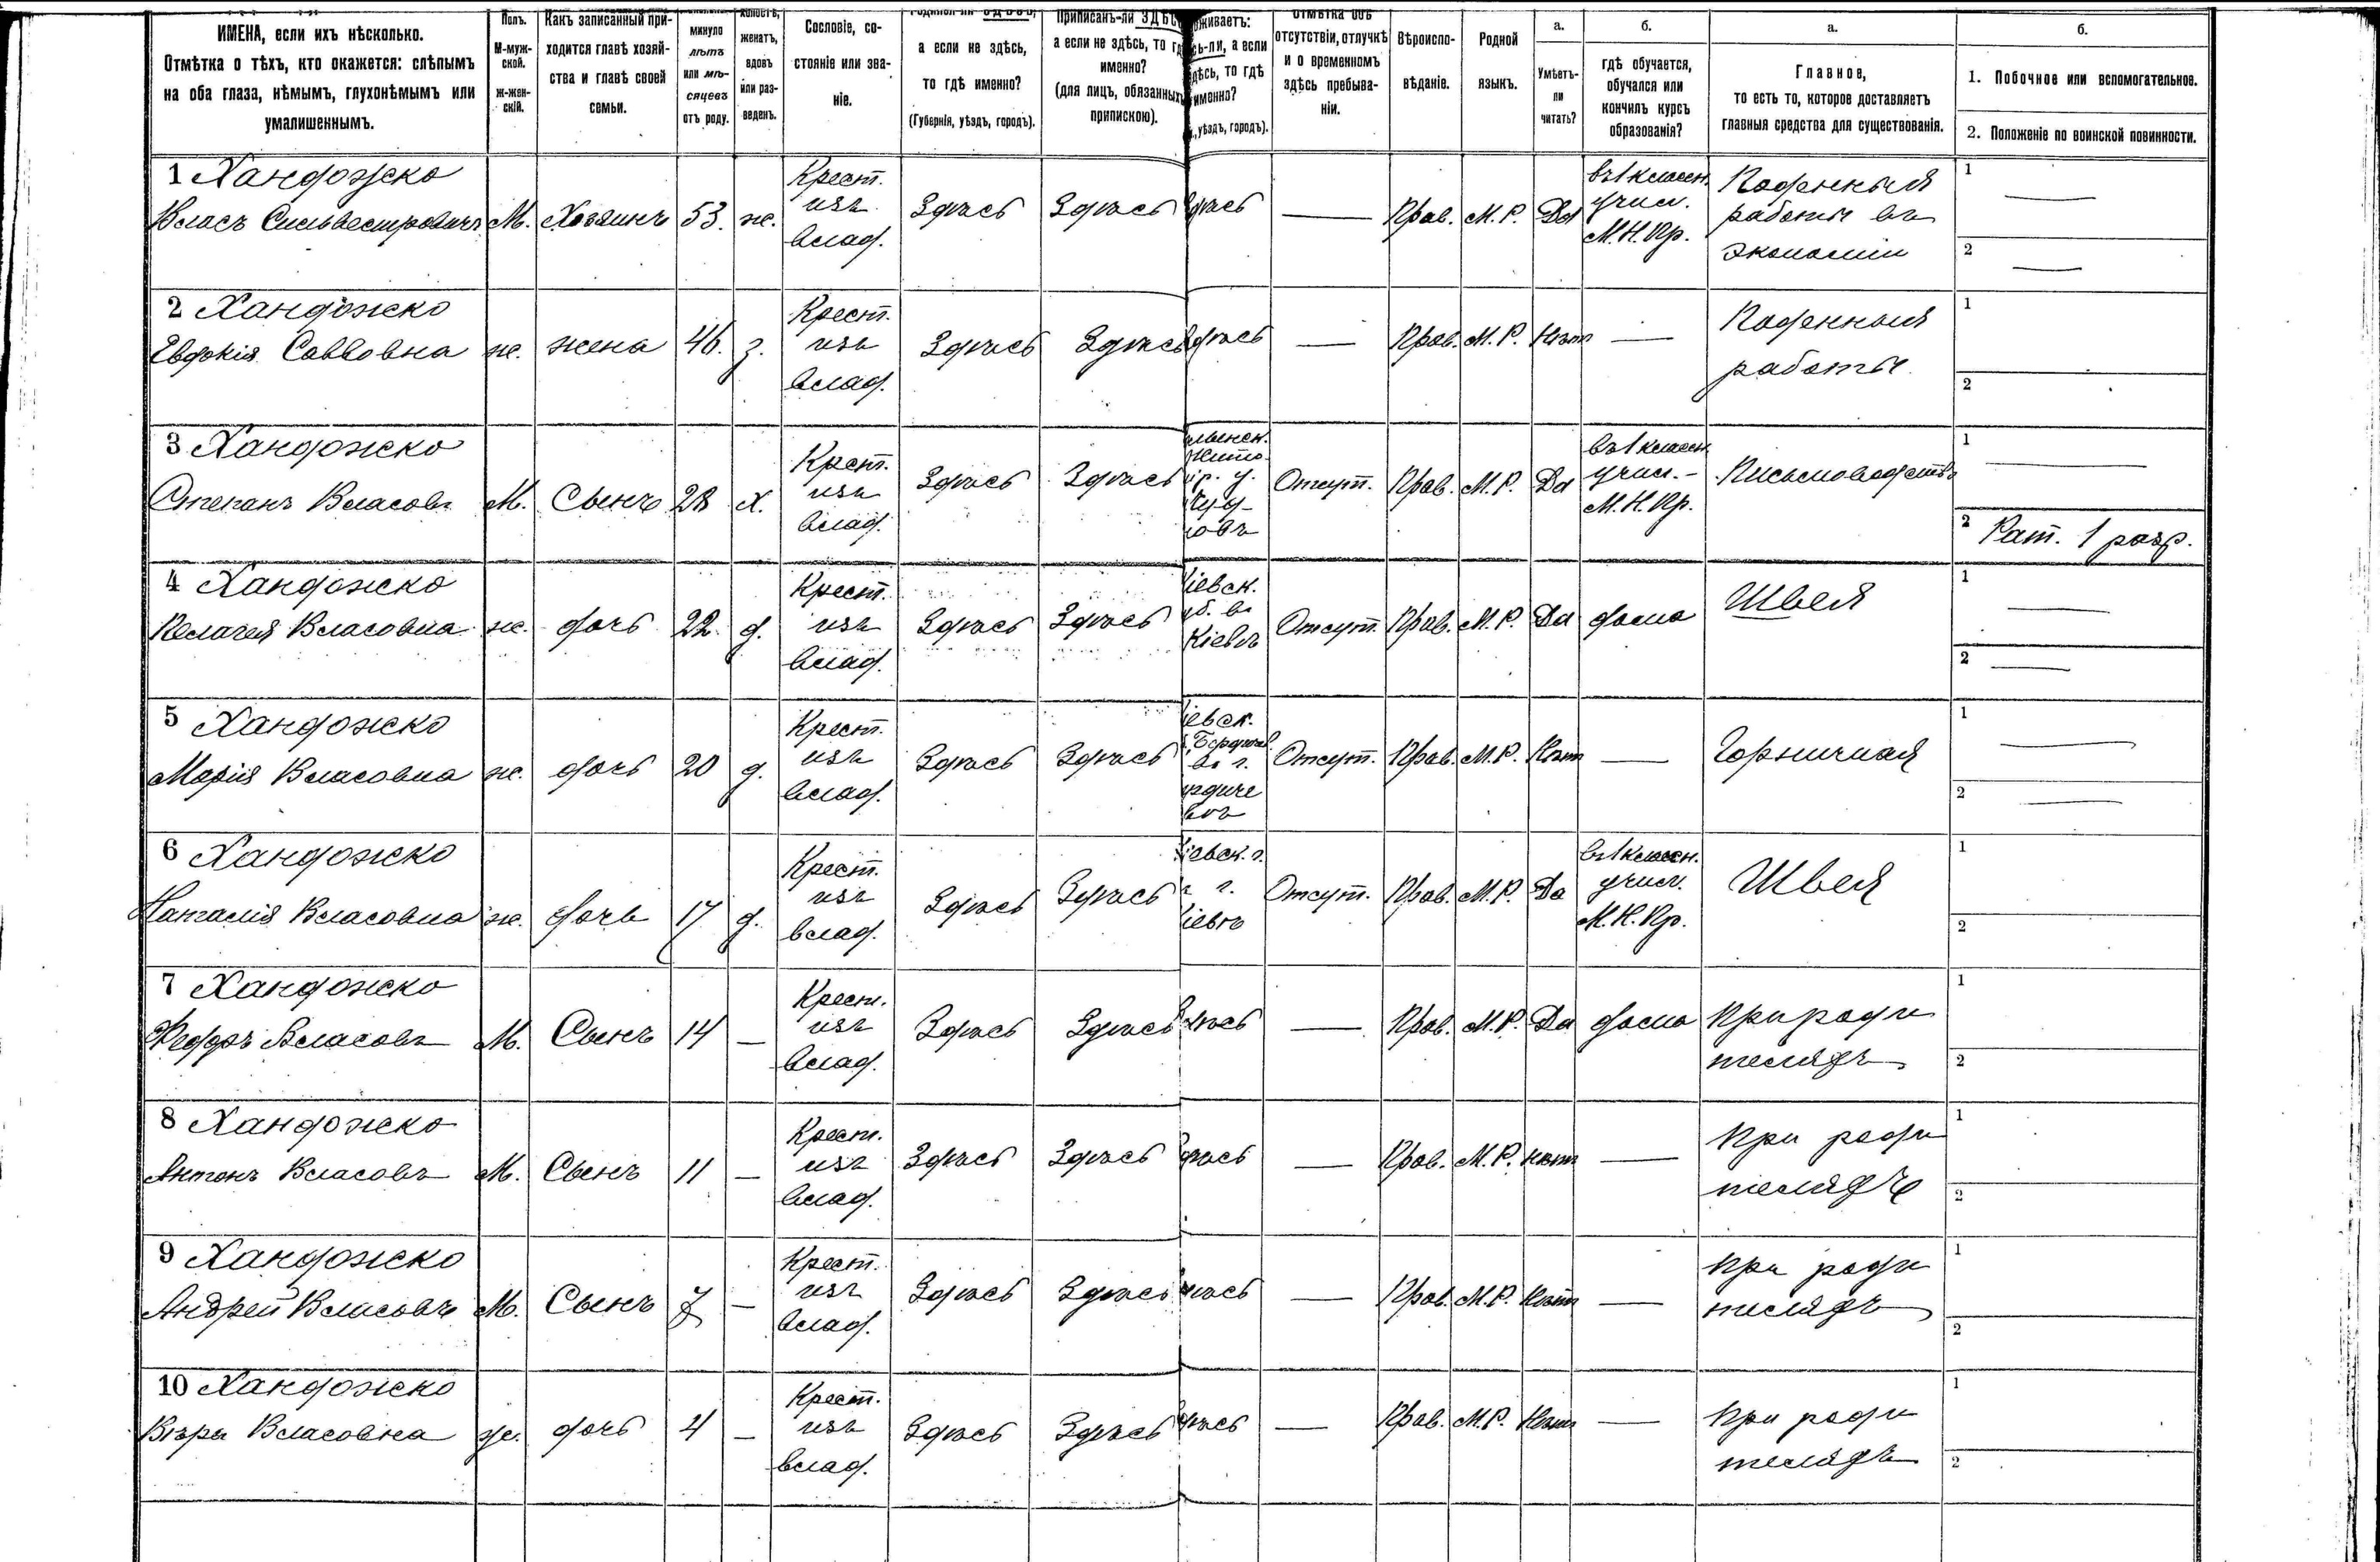 ИМЕНА, если ихъ нѣсколько.
Отмѣтка о тѣхъ, кто окажется: слѣпымъ
на оба глаза, нѣмымъ, глухонѣмымъ или
умалишеннымъ.
Полъ.
М-муж-
ской.
ж-жен-
скій.
Какъ записанный при-
ходится главѣ хозяй-
ства и главѣ своей
семьи.
минуло
лѣтъ
или мѣ-
сяцевъ
отъ роду.
женатъ,
вдовъ
или раз-
веденъ.
Сословіе, со-
стояніе или зва-
ніе.
а если не здѣсь,
то гдѣ именно?
(Губернія, уѣздъ, городъ).
Приписанъ-ли ЗДѢС
а если не здѣсь, то гд
именно?
(для лицъ, обязанных
припискою).
живаетъ:
сь-ли, а если
дѣсь, то гдѣ
именно?
, уѣздъ, городъ).
отмѣтка объ
отсутствіи, отлучкѣ
и о временномъ
здѣсь пребыва-
ніи.
Вѣроиспо-
вѣданіе.
Родной
языкъ.
а.
Умѣетъ-
ли
читать?
б.
гдѣ обучается,
обучался или
кончилъ курсъ
образованія?
а.
Главное,
то есть то, которое доставляетъ
главныя средства для существованія.
б.
1. Побочное или вспомогательное.
2. Положеніе по воинской повинности.
1 Хандожко
Власъ Сильвестровичъ М. Хозяинъ 53. ж.
Крест.
изъ
влад.
Здѣсь Здѣсь дѣсь — Прав. М. Р. Да
въ 1 классн.
учил.
М. Н. Пр.
Поденныя
работы въ
экономіи
1 —
2 —
2 Хандожко
Евдокія Савовна ж. жена 46. з.
Крест.
изъ
влад.
Здѣсь Здѣсь дѣсь — Прав. М. Р. Нѣтъ —
Поденныя
работы
1
2
3 Хандожко
Степанъ Власовъ М. Сынъ 28 х.
Крест.
изъ
влад.
Здѣсь Здѣсь
Жито
р. у.
Отсут. Прав. М. Р. Да
въ 1 классн.
учил. -
М. Н. Пр.
Письмоводство
1 —
2 Рат. 1 разр.
4 Хандожко
Пелагея Власовна ж. дочь 22. д.
Крест.
изъ
влад.
Здѣсь Здѣсь
іевск.
уб. въ
Кіевѣ
Отсут. Прав. М. Р. Да дома Швея
1 —
2 —
5 Хандожко
Марія Власовна ж. дочь 20 д.
Крест.
изъ
влад.
Здѣсь Здѣсь
іевск.
Бердичев
въ г.
рдиче
вѣ
Отсут. Прав. М. Р. Нѣтъ — Горничная
1 —
2 —
6 Хандожко
Наталія Власовна ж. дочь 17 д.
Крест.
изъ
влад.
Здѣсь Здѣсь
іевск. г.
г.
іевѣ
Отсут. Прав. М. Р. Да
въ 1 классн.
учил.
М. Н. Пр.
Швея
1
2
7 Хандожко
Федоръ Власовъ М. Сынъ 14 —
Крест.
изъ
влад.
Здѣсь Здѣсь дѣсь — Прав. М. Р. Да дома
При роди
теляхъ
1
2
8 Хандожко
Антонъ Власовъ М. Сынъ 11 —
Крест.
изъ
влад.
Здѣсь Здѣсь дѣсь — Прав. М. Р. нѣтъ —
При роди
теляхъ
1
2
9 Хандожко
Андрей Власовъ М. Сынъ 7 —
Крест.
изъ
влад.
Здѣсь Здѣсь дѣсь — Прав. М. Р. Нѣтъ —
При роди
теляхъ
1
2
10 Хандожко
Вѣра Власовна ж. дочь 4 —
Крест.
изъ
влад.
Здѣсь Здѣсь дѣсь — Прав. М. Р. Нѣтъ —
При роди
теляхъ
1
2